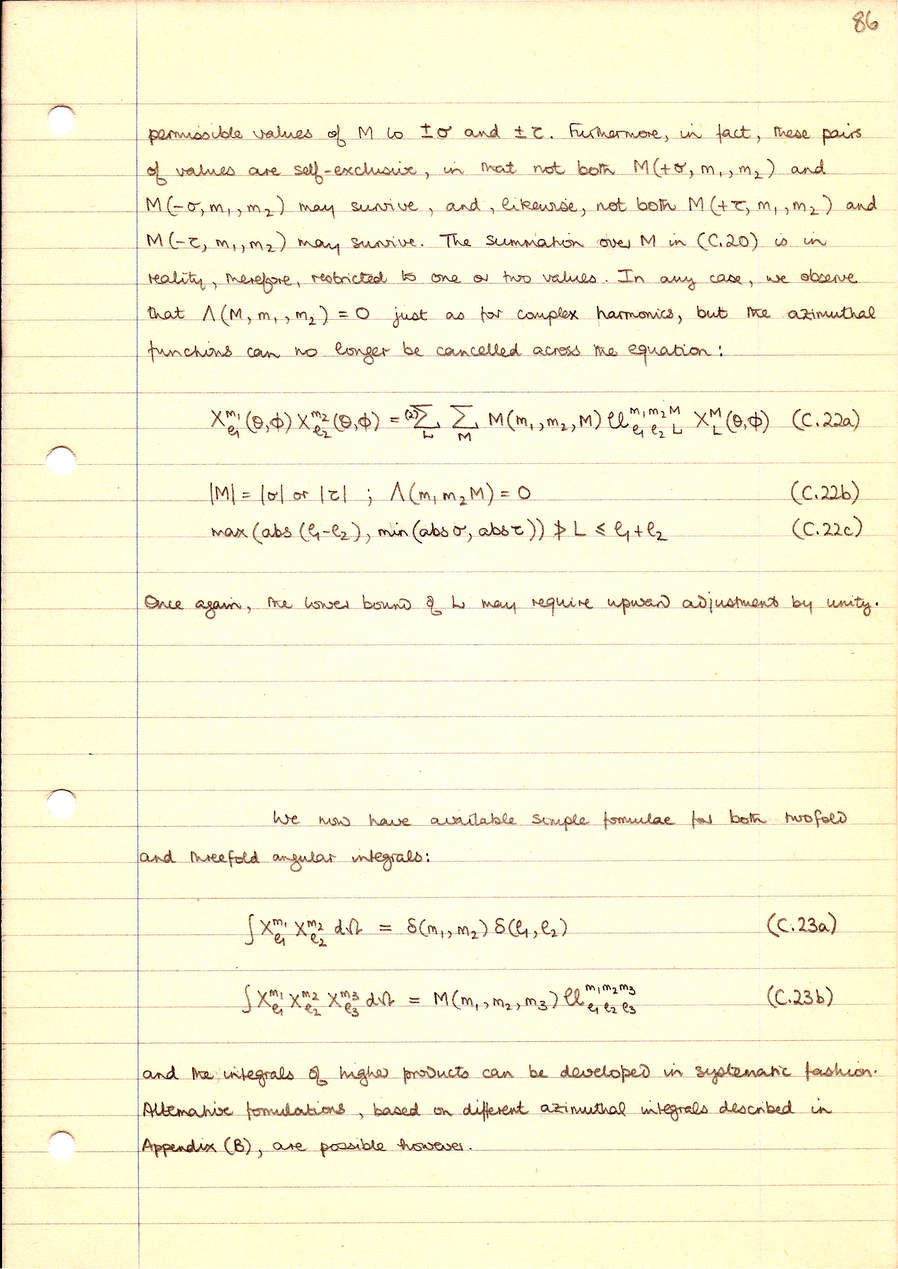 86
permissible values of M to ±σ and ±τ. Furthermore, in fact, these pairs
of values are self-exclusive, in that not both M(+σ, m₁, m₂) and
M(−σ, m₁, m₂) may survive, and, likewise, not both M(+τ, m₁, m₂) and
M(−τ, m₁, m₂) may survive. The summation over M in (C.20) is in
reality, therefore, restricted to one or two values. In any case, we observe
that Λ(M, m₁, m₂) = 0 just as for complex harmonics, but the azimuthal
functions can no longer be cancelled across the equation:
X^{m₁}_{ℓ₁}(θ,ϕ) X^{m₂}_{ℓ₂}(θ,ϕ) = ⁽²⁾∑_L ∑_M M(m₁, m₂, M) 𝒰^{m₁ m₂ M}_{ℓ₁ ℓ₂ L} X^M_L(θ,ϕ) (C.22a)
|M| = |σ| or |τ| ; Λ(m₁ m₂ M) = 0 (C.22b)
max(abs(ℓ₁−ℓ₂), min(abs σ, abs τ)) ≯ L ≤ ℓ₁+ℓ₂ (C.22c)
Once again, the lower bound of L may require upward adjustment by unity.
We now have available simple formulae for both twofold
and threefold angular integrals:
∫X^{m₁}_{ℓ₁} X^{m₂}_{ℓ₂} dΩ = δ(m₁, m₂) δ(ℓ₁, ℓ₂) (C.23a)
∫X^{m₁}_{ℓ₁} X^{m₂}_{ℓ₂} X^{m₃}_{ℓ₃} dΩ = M(m₁, m₂, m₃) 𝒰^{m₁ m₂ m₃}_{ℓ₁ ℓ₂ ℓ₃} (C.23b)
and the integrals of higher products can be developed in systematic fashion.
Alternative formulations, based on different azimuthal integrals described in
Appendix (B), are possible however.